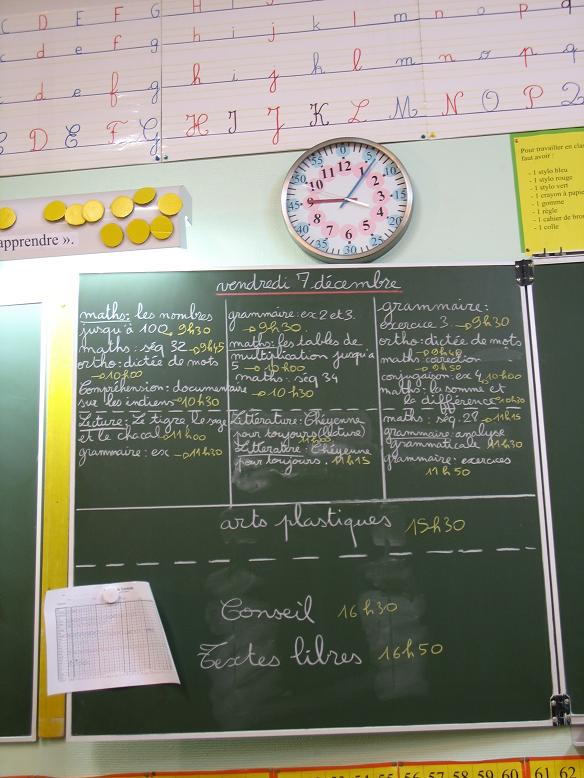 C D E F G H I J k l m n o p q
c d e f g h i j k l m n o p q
d e f g h i j k l m n o p q
C D E F G H I J K L M N O P Q
55 0 5 10 15 20 25 30 35 40 45 50
12 1 2 3 4 5 6 7 8 9 10 11
Pour travailler en cla
faut avoir :
- 1 stylo bleu
- 1 stylo rouge
- 1 stylo vert
- 1 crayon à papie
- 1 gomme
- 1 règle
- 1 cahier de brou
- 1 colle
apprendre ».
vendredi 7 décembre
maths: les nombres
jusqu'à 100 → 9h30
maths: séq 32 → 9h45
ortho: dictée de mots
→ 10h00
Compréhension: documentaire
sur les indiens → 10h30
Lecture: Le tigre, le sage
et le chacal → 11h00
grammaire: ex → 11h30
grammaire: ex 2 et 3.
→ 9h30
maths: les tables de
multiplication jusqu'à
5 → 10h00
maths: séq 34
→ 10h30
Littérature: Cheyenne
pour toujours (lecture)
11h00
Littérature: Cheyenne
pour toujours. 11h15
grammaire:
exercice 3. → 9h30
ortho: dictée de mots
→ 9h40
maths: correction
→ 9h50
conjugaison: ex 4 → 10h00
maths: la somme et
la différence → 10h30
maths: séq. 29 → 11h15
grammaire: analyse
grammaticale 11h30
grammaire: exercices
11h50
arts plastiques 15h30
Conseil 16h30
Textes libres 16h50
53 54 55 56 57 58 59 60 61 62